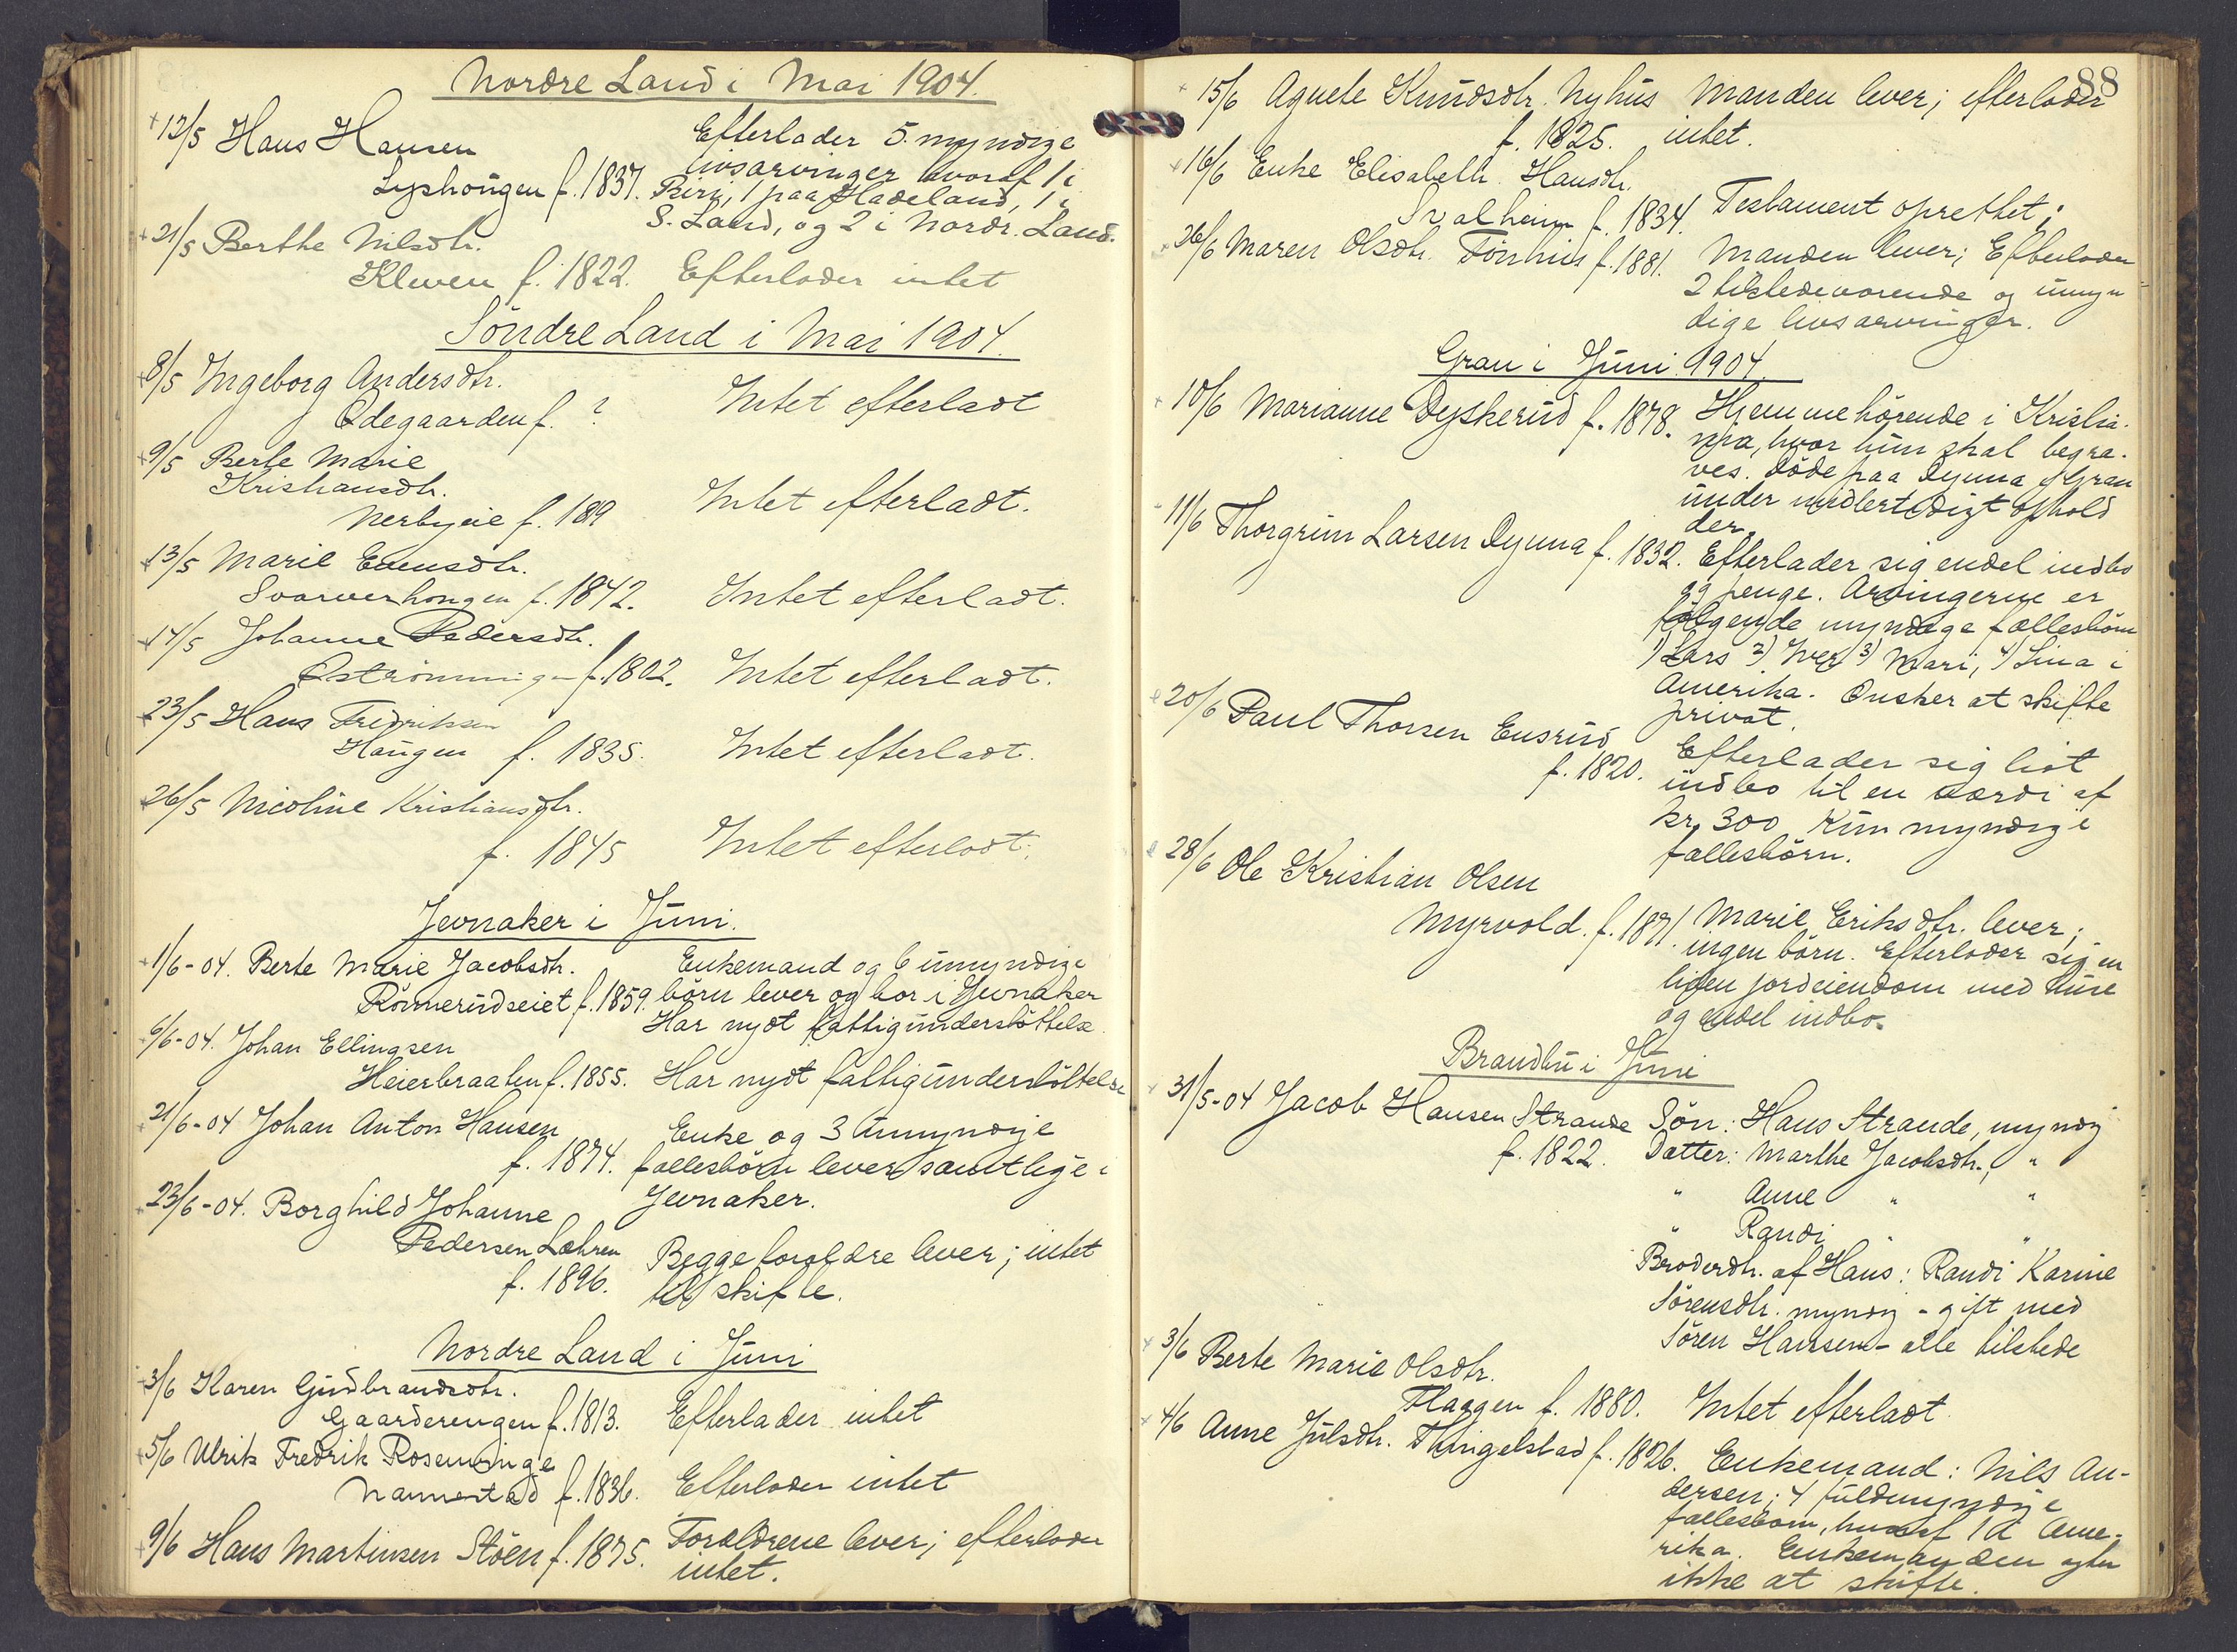 Nordre Land i Mai 1904.
+12/5 Hans Hansen Efterlader 5 myndige
livsarvinger hvoraf 1 i
Lyshougen f. 1837. Biri, 1 paa Hadeland, 1 i
S. Land, og 2 i Nordr. Land.
+21/5 Berthe Nilsdtr.
Kleven f. 1822. Efterlader intet
Söndre Land i Mai 1904.
+8/5 Ingeborg Andersdtr.
Ödegaarden f. ? Intet efterladt
+9/5 Berte Marie
Kristiansdtr.
Nerbyeie f. 189 Intet efterladt.
+13/5 Marie Evensdtr.
Svarverhougen f. 1842. Intet efterladt.
+14/5 Johanne Pedersdtr.
f. 1802. Intet efterladt.
+23/5 Hans Fredriksen
Haugen f. 1835. Intet efterladt.
+26/5 Nicoline Kristiansdtr.
f. 1845 Intet efterladt.
Jevnaker i Juni.
+1/6-04. Berte Marie Jacobsdtr. Enkemand og 6 umyndige
Rönnerudseiet f. 1859. börn lever og bor i Jevnaker
Har nydt fattigunderstöttelse.
6/6-04. Johan Ellingsen
Heierbraaten f. 1855. Har nydt fattigunderstöttelse
+21/6-04 Johan Anton Hansen Enke og 3 umyndige
f. 1874. fællesbörn lever samtlige i
Jevnaker.
+23/6-04. Borghild Johanne
Pedersen Lohren Begge forældre lever; intet
f. 1896. til skifte.
Nordre Land i Juni
+3/6 Karen Gudbrandsdtr.
Gaarderengen f. 1813. Efterlader intet
+5/6 Ulrik Fredrik Rosenvinge
Nannestad f. 1836. Efterlader intet
+9/6 Hans Martinsen Stöen f. 1875. Forældrene lever; efterlader
intet.
88
+15/6 Agnete Knudsdtr. Nyhus Manden lever; efterlader
f. 1825. intet.
+16/6 Enke Elisabeth Hansdtr.
Svalheim f. 1834. Testament oprettet;
+26/6 Maren Olsdtr. Tönhus f. 1881. Manden lever; Efterlader
2 tilstedeværende og umyn
dige livsarvinger.
Gran i Juni 1904.
+10/6 Marianne Dyskerud f. 1878. Hjemmehörende i Kristia-
nia, hvor hun skal begra-
ves. Döde paa Dynna i Gran
under midlertidigt ophold
der.
11/6 Thorgrim Larsen Dynna f. 1832. Efterlader sig endel indbo
og penge. Arvingerne er
fölgende myndige fællesbörn
1) Lars 2) Iver 3) Mari, 4) Lina i
Amerika. Önsker at skifte
privat.
20/6 Paul Thorsen Eusrud Efterlader sig lidt
f. 1820. indbo til en værdi af
kr. 300 Kun myndige
fællesbörn.
28/6 Ole Kristian Olsen
Myrvold. f. 1871. Marie Eriksdtr. lever;
ingen börn. Efterlader sig en
liden jordeiendom med huse
og endel indbo.
Brandbu i Juni
+31/5-04 Jacob Hansen Strande Sön: Hans Strande, myndig
f. 1822. Datter: Marthe Jacobsdtr., "
" Anne " "
" Randi " "
Broderdtr. af Hans: Randi Karine
Sörensdtr. myndig - gift med
Sören Hansen - alle tilstede
+3/6 Berte Marie Olsdtr.
Flaggen f. 1880. Intet efterladt
+4/6 Anne Julsdtr. Thingelstad f. 1826. Enkemand: Nils An-
dersen; 4 fuldmyndige
fællesbarn, hvoraf 1 i Ame-
rika. Enkemanden agter
ikke at skifte.